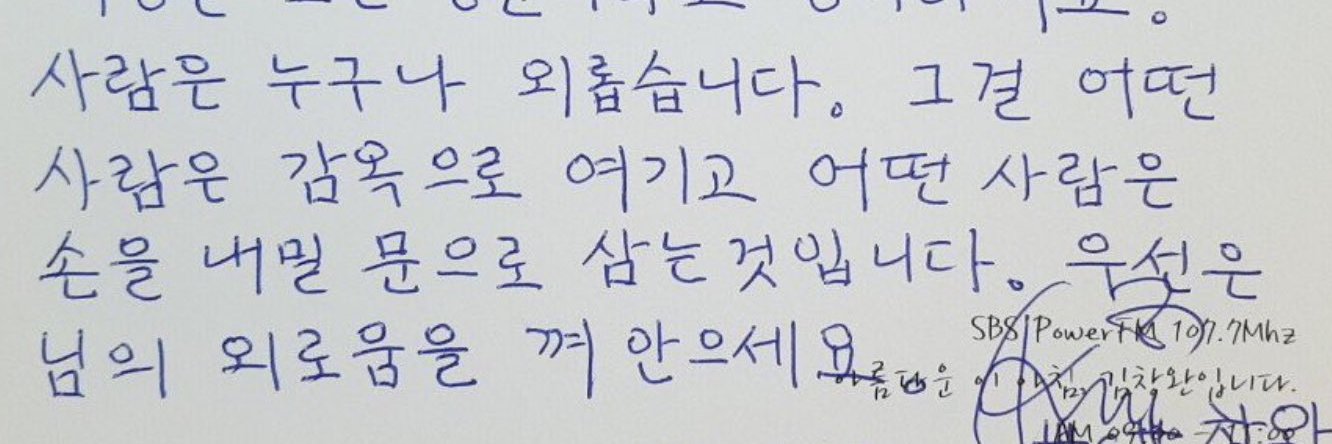 사람은 누구나 외롭습니다. 그걸 어떤
사람은 감옥으로 여기고 어떤 사람은
손을 내밀 문으로 삼는것입니다. 우선은
님의 외로움을 껴안으세요
SBS Power FM 107.7Mhz
아름다운 이 아침, 김창완입니다.